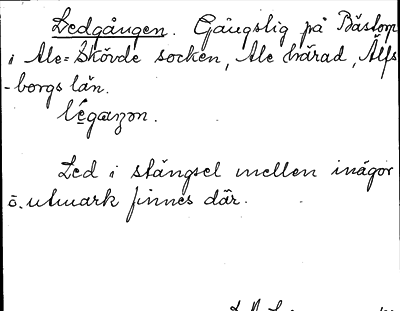 Ledgången. Gångstig på Båstorp
i Ale-Skövde socken, Ale härad, Älfs
-borgs län.
Légaŋən.
Led i stängsel mellan inägor
o. utmark finnes där.